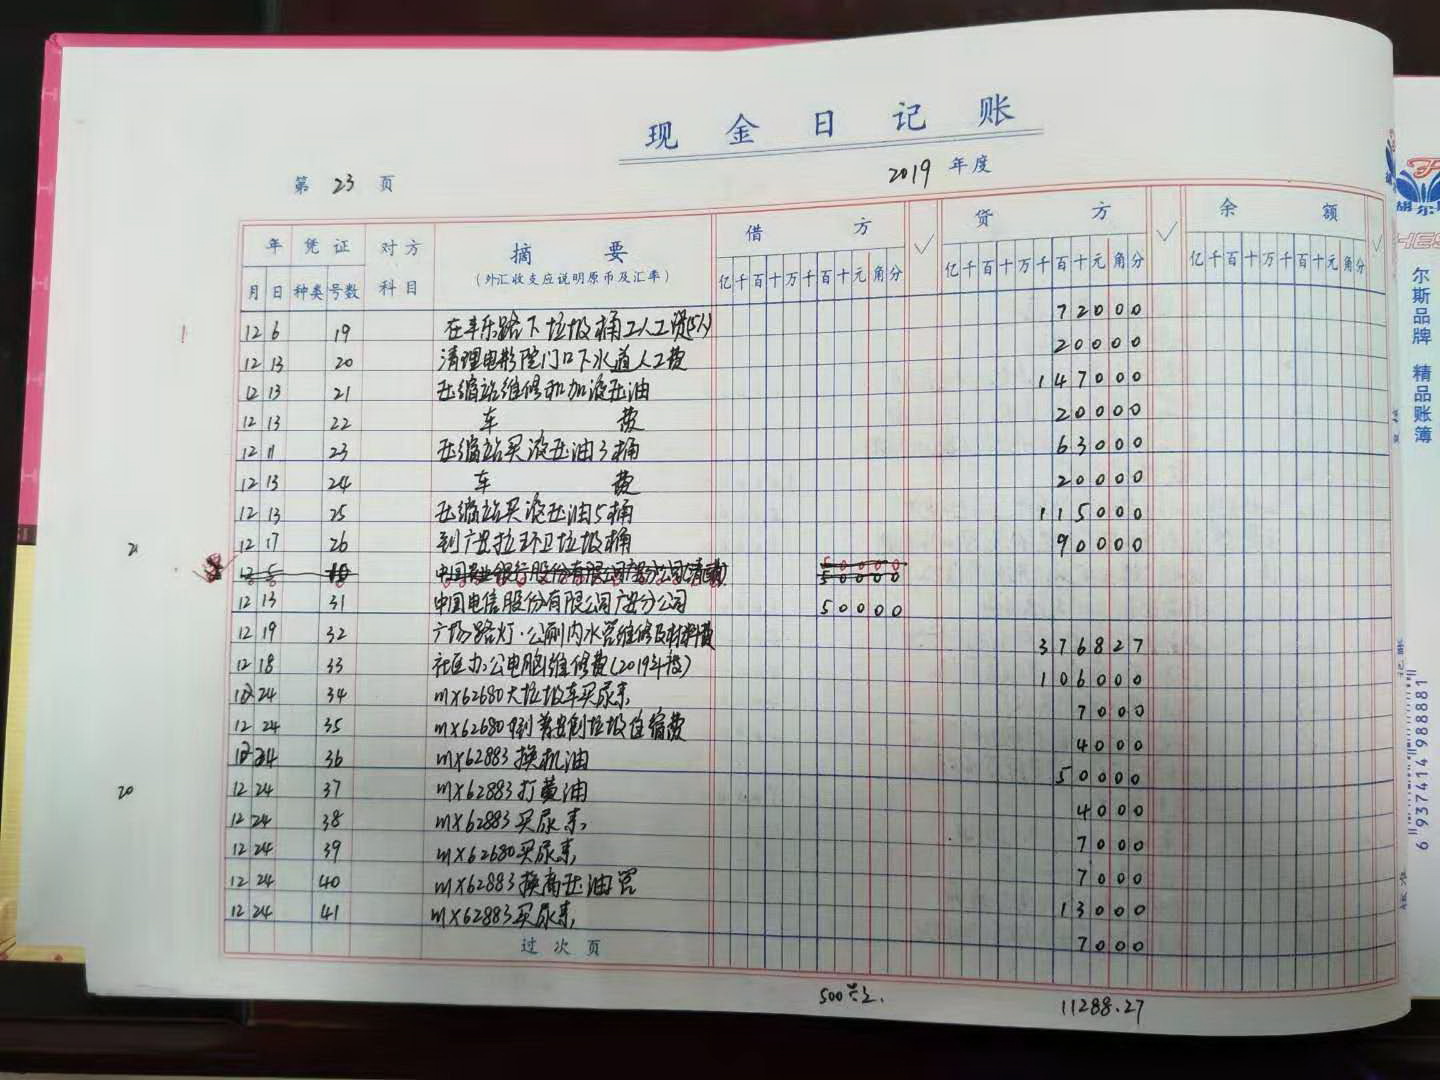 现金日记账
第 23 页
2019 年度
年 凭证 对方 摘要 借方 ✓ 贷方 ✓ 余额 ✓
月 日 种类 号数 科目 (外汇收支应说明原币及汇率) 亿千百十万千百十元角分 亿千百十万千百十元角分 亿千百十万千百十元角分
12 6 19 在丰乐路下垃圾桶工人工资(5人) 72000
12 13 20 清理电影院门口下水道人工费 20000
12 13 21 压缩站维修和加液压油 147000
12 13 22 车费 20000
12 11 23 压缩站买液压油3桶 63000
12 13 24 车费 20000
12 13 25 压缩站买液压油5桶 115000
21 12 17 26 到广安拉环卫垃圾桶 90000
50000
12 13 31 中国电信股份有限公司广安分公司 50000
12 19 32 广场路灯·公厕内水管维修及材料费 376827
12 18 33 社区办公电脑维修费(2019年度) 106000
12 24 34 mX62680大垃圾车买尿素 7000
12 24 35 mX62680 垃圾 费 4000
12 24 36 mX62883换机油 50000
20 12 24 37 mX62883打黄油 4000
12 24 38 mX62883买尿素 7000
12 24 39 mX62680买尿素 7000
12 24 40 mX62883换高压油管 13000
12 24 41 mX62883买尿素 7000
过次页
11288.27
尔斯品牌 精品账簿
6 937414 988881